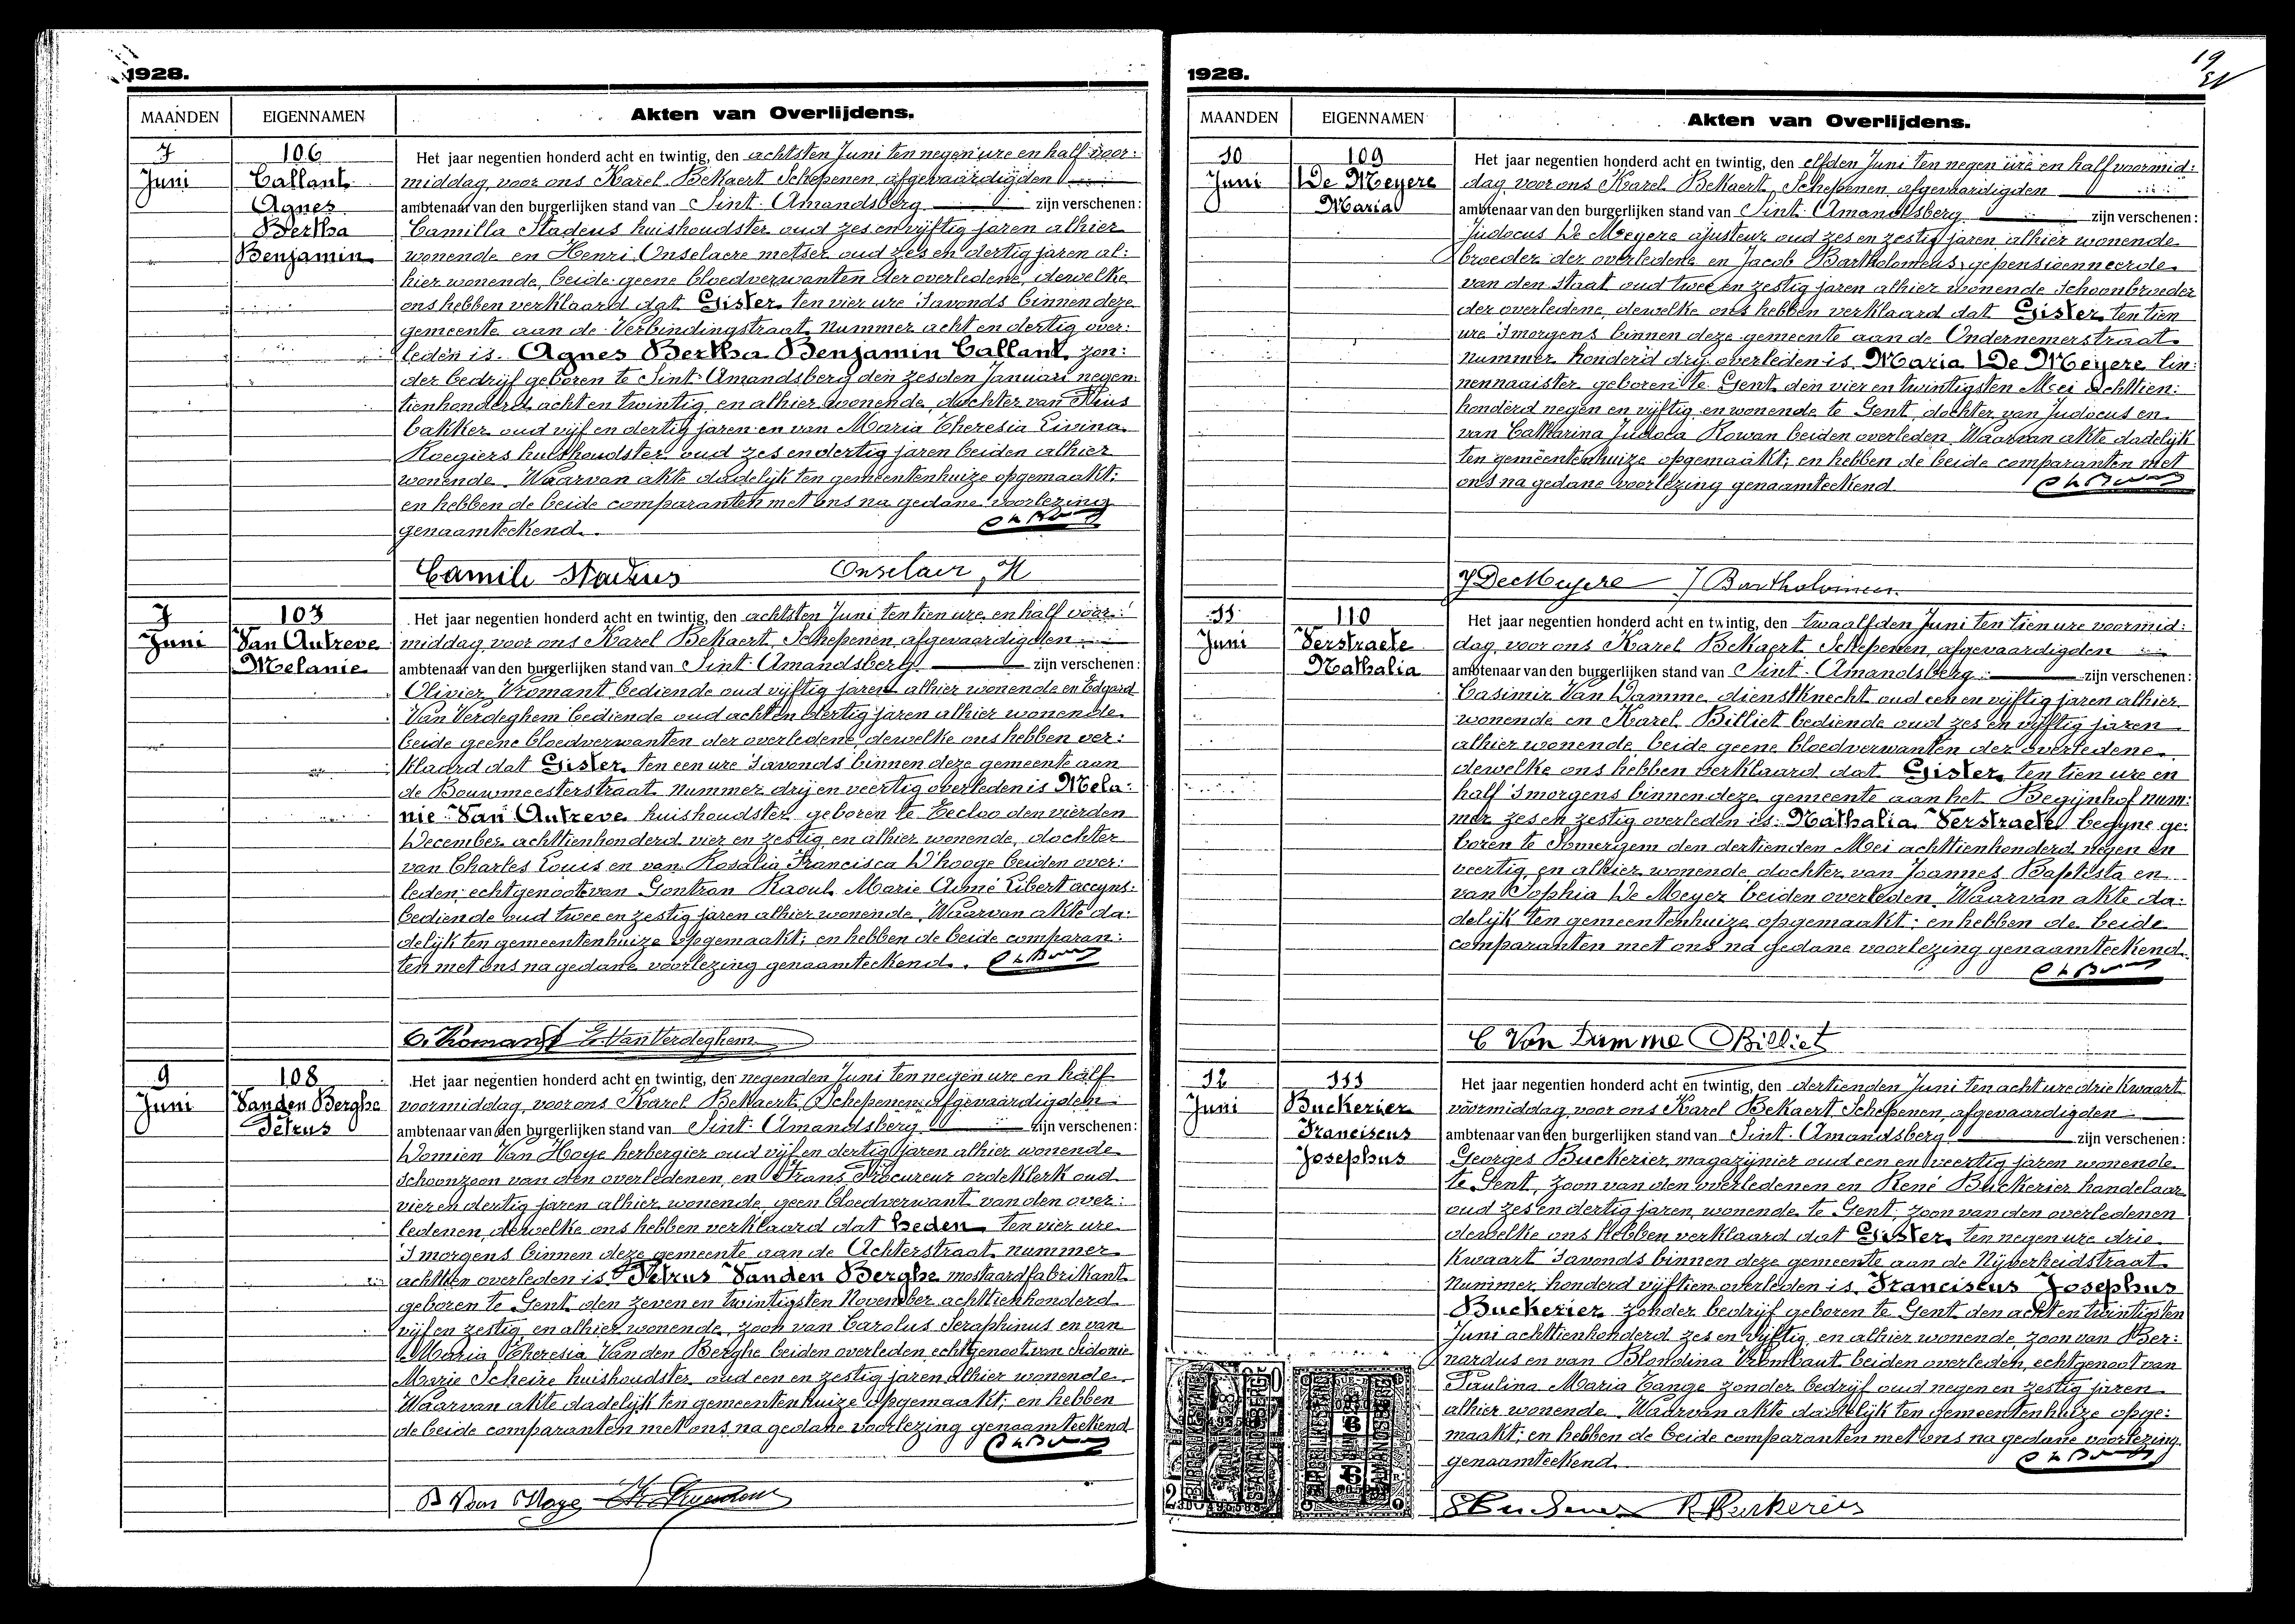 1928.
MAANDEN
EIGENNAMEN
Akten van Overlijdens.
7
Juni
106
Callant
Agnes
Bertha
Benjamin
Het jaar negentien honderd acht en twintig, den achtsten Juni ten negen ure en half voor:
middag, voor ons Karel Bekaert Schepenen, afgevaardigden
ambtenaar van den burgerlijken stand van Sint-Amandsberg zijn verschenen:
Camilla Stadeus huishoudster oud zes en vijftig jaren alhier
wonende en Henri Onselaere metser oud zes en dertig jaren al:
hier wonende, beide geene bloedverwanten der overledene, dewelke
ons hebben verklaard dat Gister ten vier ure 's avonds binnen deze
gemeente aan de Verbindingstraat nummer acht en dertig over:
leden is Agnes Bertha Benjamin Callant, zon:
der bedrijf geboren te Sint-Amandsberg den zesden Januari negen:
tienhonderd acht en twintig en alhier wonende, dochter van Pius
bakker oud vijf en dertig jaren en van Maria Theresia Livina
Roegiers huishoudster oud zes en dertig jaren beiden alhier
wonende. Waarvan akte dadelijk ten gemeentenhuize opgemaakt;
en hebben de beide comparanten met ons na gedane voorlezing
genaamteekend.
Camile Stadeus Onselaer, H
7
Juni
107
Van Autreve
Melanie
Het jaar negentien honderd acht en twintig, den achtsten Juni ten tien ure en half voor:
middag, voor ons Karel Bekaert, Schepenen, afgevaardigden
ambtenaar van den burgerlijken stand van Sint-Amandsberg zijn verschenen:
Olivier Vromant bediende oud vijftig jaren alhier wonende en Edgard
Van Verdeghem bediende oud acht en dertig jaren alhier wonende
beide geene bloedverwanten der overledene, dewelke ons hebben ver:
klaard dat Gister ten een ure 's avonds binnen deze gemeente aan
de Bouwmeesterstraat nummer drij en veertig overleden is Mela:
nie Van Autreve huishoudster geboren te Eecloo den vierden
December achttienhonderd vier en zestig en alhier wonende, dochter
van Charles Louis en van Rosalia Francisca D'hooge beiden over:
leden; echtgenoote van Gontran Raoul Marie Aimé Libert accyns:
bediende oud twee en zestig jaren alhier wonende. Waarvan akte da:
delijk ten gemeentenhuize opgemaakt; en hebben de beide comparan:
ten met ons na gedane voorlezing genaamteekend.
O. Vromant E. Van Verdeghem
9
Juni
108
Vanden Berghe
Petrus
Het jaar negentien honderd acht en twintig, den negenden Juni ten negen ure en half
voormiddag, voor ons Karel Bekaert, Schepenen, afgevaardigden
ambtenaar van den burgerlijken stand van Sint-Amandsberg zijn verschenen:
Domien Van Hoye herbergier oud vijf en dertig jaren alhier wonende
schoonzoon van den overledenen, en Frans Procureur ordeklerk oud
vier en dertig jaren alhier wonende, geen bloedverwant van den over:
ledenen, dewelke ons hebben verklaard dat heden ten vier ure
's morgens binnen deze gemeente aan de Achterstraat nummer
achttien overleden is Petrus Vanden Berghe mostaardfabrikant
geboren te Gent den zeven en twintigsten November achttienhonderd
vijf en zestig en alhier wonende, zoon van Carolus Seraphinus en van
Maria Theresia Vanden Berghe beiden overleden, echtgenoot van Sidonie
Marie Scheire huishoudster oud een en zestig jaren alhier wonende.
Waarvan akte dadelijk ten gemeentenhuize opgemaakt; en hebben
de beide comparanten met ons na gedane voorlezing genaamteekend
D Van Hoye
1928.
19
MAANDEN
EIGENNAMEN
Akten van Overlijdens.
10
Juni
109
De Meyere
Maria
Het jaar negentien honderd acht en twintig, den elfden Juni ten negen ure en half voormid:
dag, voor ons Karel Bekaert, Schepenen, afgevaardigden
ambtenaar van den burgerlijken stand van Sint-Amandsberg zijn verschenen:
Judocus De Meyere ajusteur oud zes en zestig jaren alhier wonende
broeder der overledene en Jacob Bartholomeus, gepensioenneerde
van den Staat oud twee en zestig jaren alhier wonende Schoonbroeder
der overledene, dewelke ons hebben verklaard dat Gister ten tien
ure 's morgens binnen deze gemeente aan de Ondernemerstraat
nummer honderd drij overleden is Maria De Meyere lin:
nennaaister geboren te Gent den vier en twintigsten Mei achttien:
honderd negen en vijftig en wonende te Gent, dochter van Judocus en
van Catharina Judoca Rowan beiden overleden. Waarvan akte dadelijk
ten gemeentenhuize opgemaakt; en hebben de beide comparanten met
ons na gedane voorlezing genaamteekend.
J De Meyere J Bartholomeus
11
Juni
110
Verstraete
Nathalia
Het jaar negentien honderd acht en twintig, den twaalfden Juni ten tien ure voormid:
dag, voor ons Karel Bekaert Schepenen, afgevaardigden
ambtenaar van den burgerlijken stand van Sint-Amandsberg zijn verschenen:
Casimir Van Damme dienstknecht oud een en vijftig jaren alhier
wonende en Karel Billiet bediende oud zes en vijftig jaren
alhier wonende, beide geene bloedverwanten der overledene
dewelke ons hebben verklaard dat Gister ten tien ure en
half 's morgens binnen deze gemeente aan het Begijnhof num:
mer zes en zestig overleden is: Nathalia Verstraete begyne ge:
boren te Somergem den dertienden Mei achttienhonderd negen en
veertig en alhier wonende dochter van Joannes Baptista en
van Sophia De Meyer beiden overleden. Waarvan akte da:
delijk ten gemeentenhuize opgemaakt; en hebben de beide
comparanten met ons na gedane voorlezing genaamteekend.
C Van Damme Billiet
12
Juni
111
Buckerier
Franciscus
Josephus
Het jaar negentien honderd acht en twintig, den dertienden Juni ten acht ure drie kwaart
voormiddag, voor ons Karel Bekaert Schepenen, afgevaardigden
ambtenaar van den burgerlijken stand van Sint-Amandsberg zijn verschenen:
Georges Buckerier, magazijnier oud een en veertig jaren wonende
te Gent, zoon van den overledenen en René Buckerier handelaar
oud zes en dertig jaren, wonende te Gent, zoon van den overledenen
dewelke ons hebben verklaard dat Gister ten negen ure drie
kwaart 's avonds binnen deze gemeente aan de Nijverheidstraat
nummer honderd vijftien overleden is Franciscus Josephus
Buckerier zonder bedrijf geboren te Gent den acht en twintigsten
Juni achttienhonderd zes en vijftig en alhier wonende, zoon van Ber:
nardus en van Blondina Vrombaut beiden overleden, echtgenoot van
Paulina Maria Tange zonder bedrijf oud negen en zestig jaren
alhier wonende. Waarvan akte dadelijk ten gemeentenhuize opge:
maakt; en hebben de beide comparanten met ons na gedane voorlezing
genaamteekend.
R Buckerier